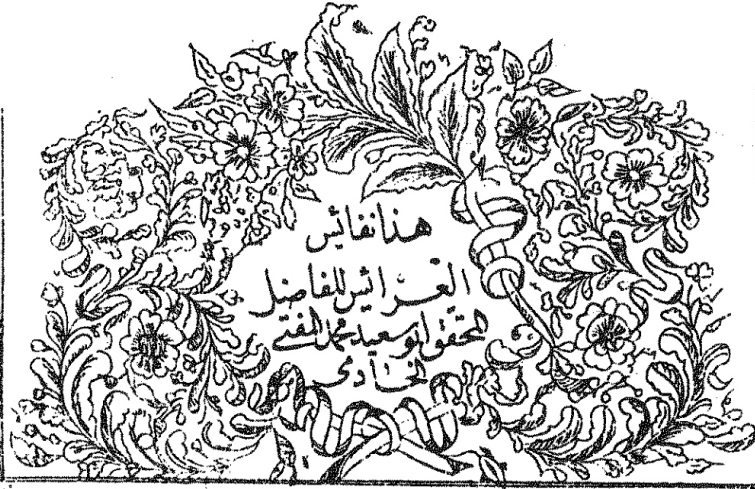 هذا نفائس
العرائس للفاضل
المحقق ابو سعيد محمد المفتى
الخادمى